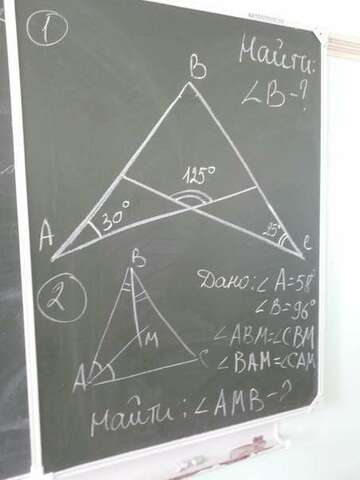 1
Найти:
∠B-?
B
125°
A
30°
25°
C
2
B
Дано: ∠A=58°
∠B=96°
∠ABM=∠CBM
M
∠BAM=∠CAM
C
A
Найти: ∠AMB-?